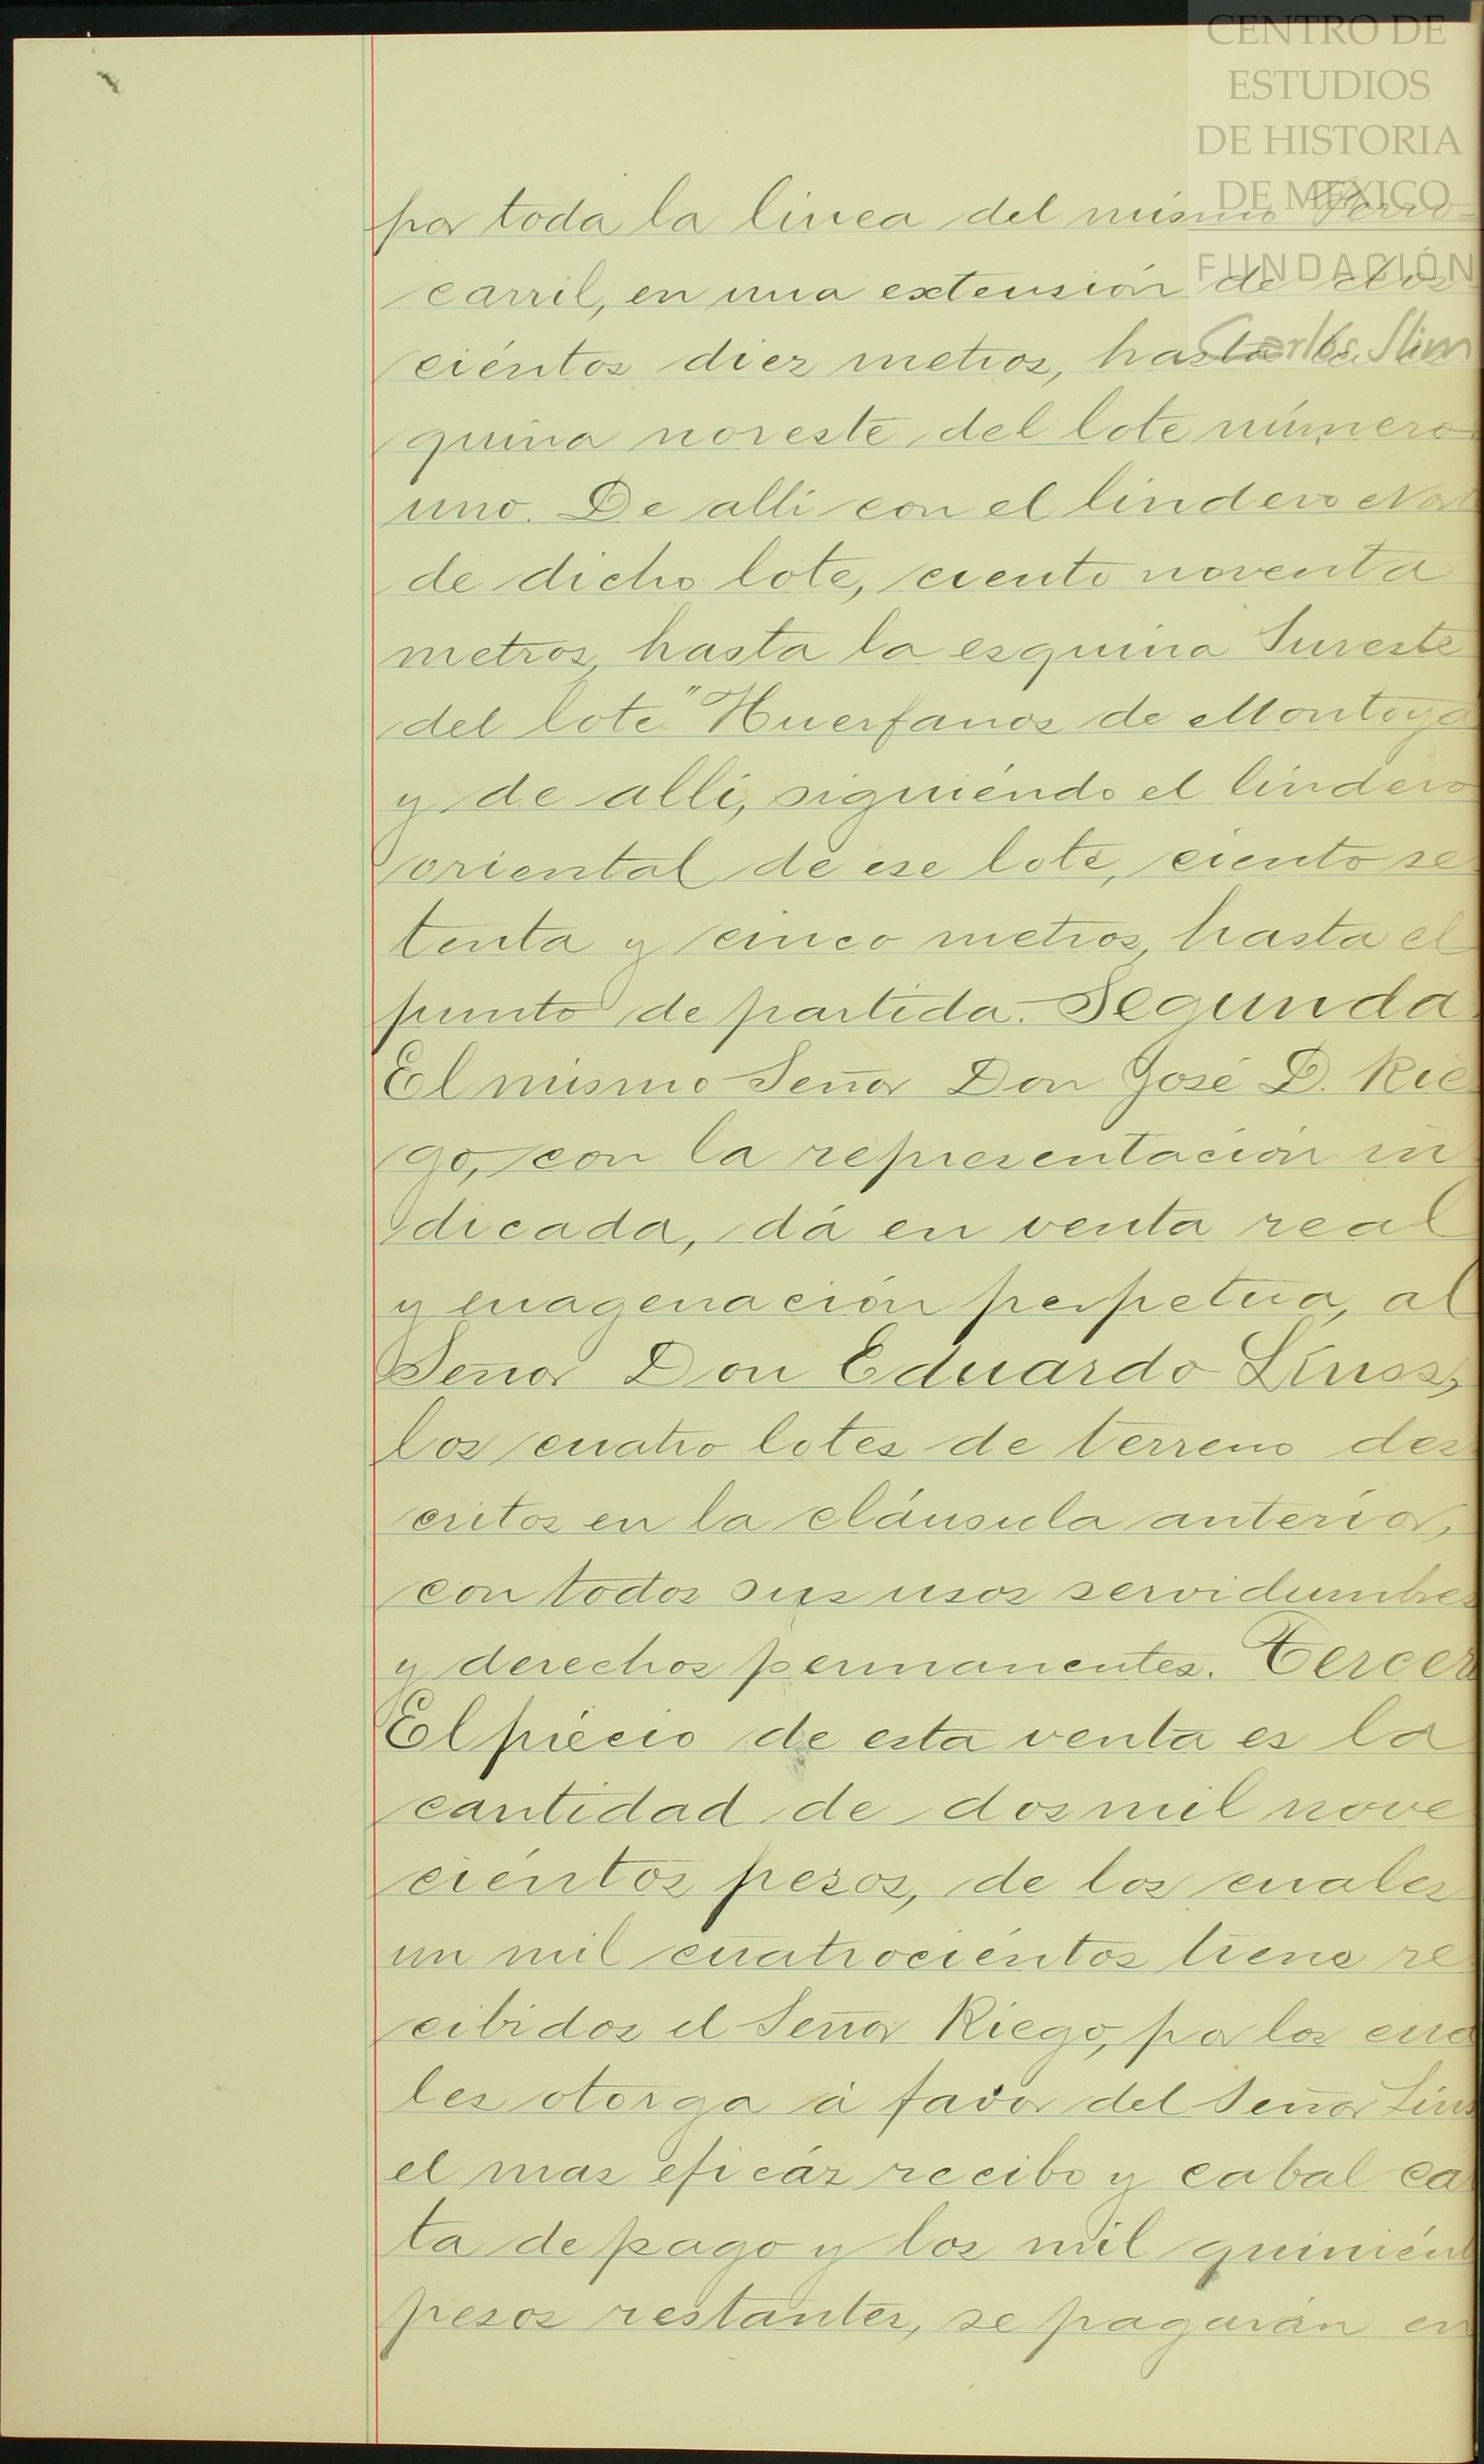 CENTRO DE
ESTUDIOS
DE HISTORIA
DE MEXICO
FUNDACIÓN
Carlos Slim
por toda la linea del mismo Ferro-
carril, en una extensión de dos-
ciéntos diez metros, hasta la es
quina noreste del lote número
uno. De alli con el lindero Nort
de dicho lote, ciento noventa
metros, hasta la esquina Sureste
del lote "Huerfanos de Montoya
y de alli, siguiéndo el lindero
oriental de ese lote, ciento se
tenta y cinco metros, hasta el
punto de partida. Segunda.
El mismo Señor Don José D. Rie
go, con la representación in
dicada, dá en venta real
y enagenación perpetua, al
Señor Don Eduardo Linss,
los cuatro lotes de terreno des
critos en la cláusula anterior,
con todos sus usos servidumbres
y derechos permanentes. Tercer
El précio de esta venta es la
cantidad de dos mil nove
ciéntos pesos, de los cuales
un mil cuatrociéntos tiene re
cibidos el Señor Riego, por los cua
les otorga á favor del Señor Lins
el mas eficáz recibo y cabal ca
ta de pago y los mil quiniént
pesos restantes, se pagarán en